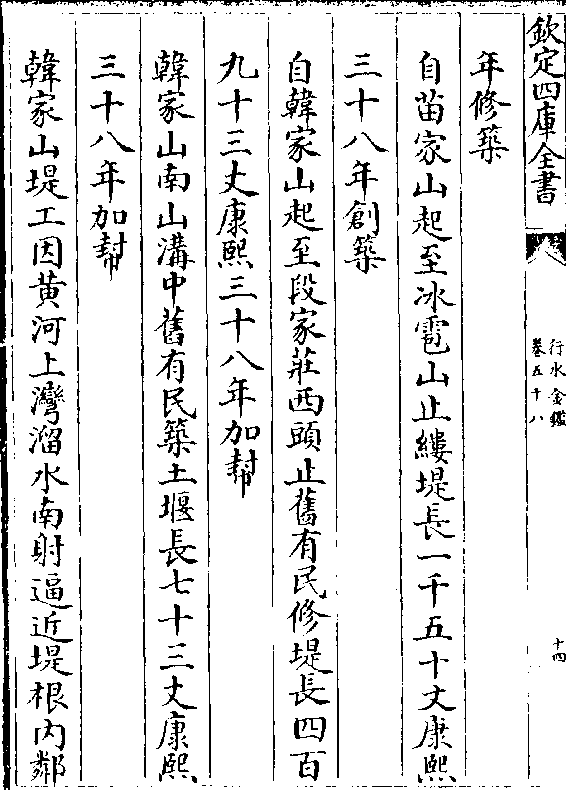 欽定四庫全書
行水金鑑
卷五十八
十四
年修築
自苗家山起至冰雹山止縷堤長一千五十丈康熙
三十八年創築
自韓家山起至段家莊西頭止舊有民修堤長四百
九十三丈康熙三十八年加幫
韓家山南山溝中舊有民築土堰長七十三丈康熙
三十八年加幫
韓家山堤工因黄河上灣溜水南射逼近堤根内鄰